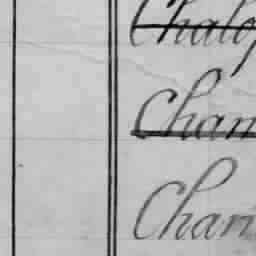 Chalo
Chan
Chari